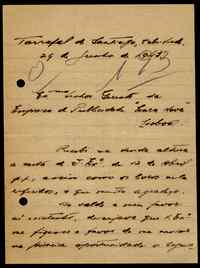 Tarrafal de Santiago, Cabo Verde,
29 de Junho de
Exmo Senhor Gerente da
Empresa de Publicidade "Seara Nova"
Lisboa
Recebi na devida altura
a nota de V. Exª de 12 de Abril
p.p., assim como os livros nela
referidos, o que muito agradeço.
No saldo a meu favor
aí existente, desejava que V. Exª
me fizesse o favor de me enviar
na próxima oportunidade o